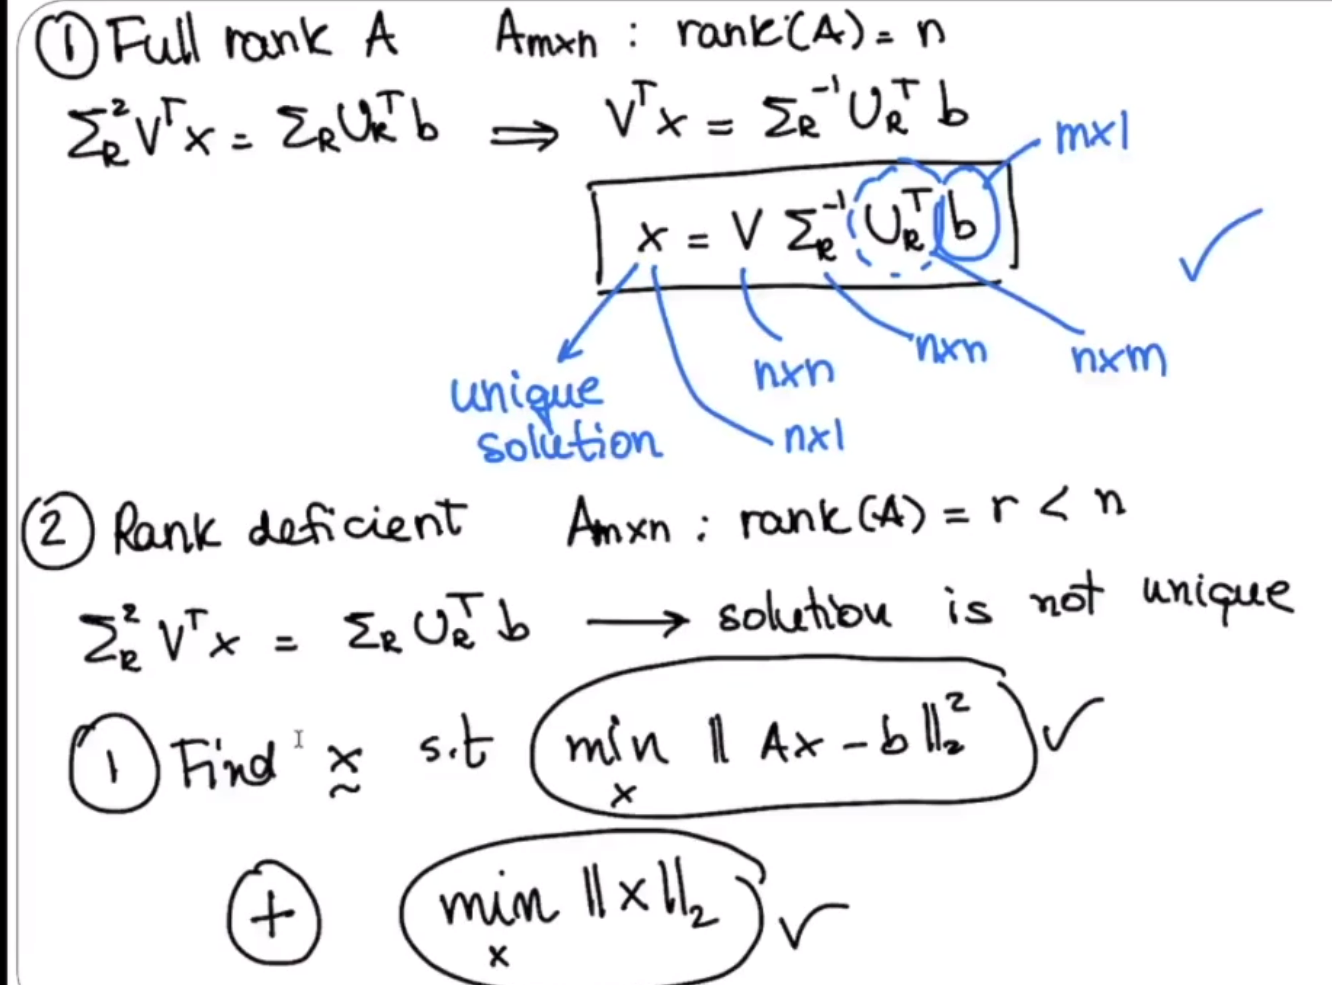 ① Full rank A   A_{m×n} : rank(A) = n
Σ_R² Vᵀx = Σ_R U_Rᵀ b ⟹ Vᵀx = Σ_R⁻¹ U_Rᵀ b
m×1
x = V Σ_R⁻¹ U_Rᵀ b ✓
n×n   n×n   n×m
unique
solution   n×1
② Rank deficient   A_{m×n} : rank(A) = r < n
Σ_R² Vᵀx = Σ_R U_Rᵀ b ⟶ solution is not unique
① Find x s.t min_x ‖Ax − b‖₂² ✓
⊕ min_x ‖x‖₂ ✓